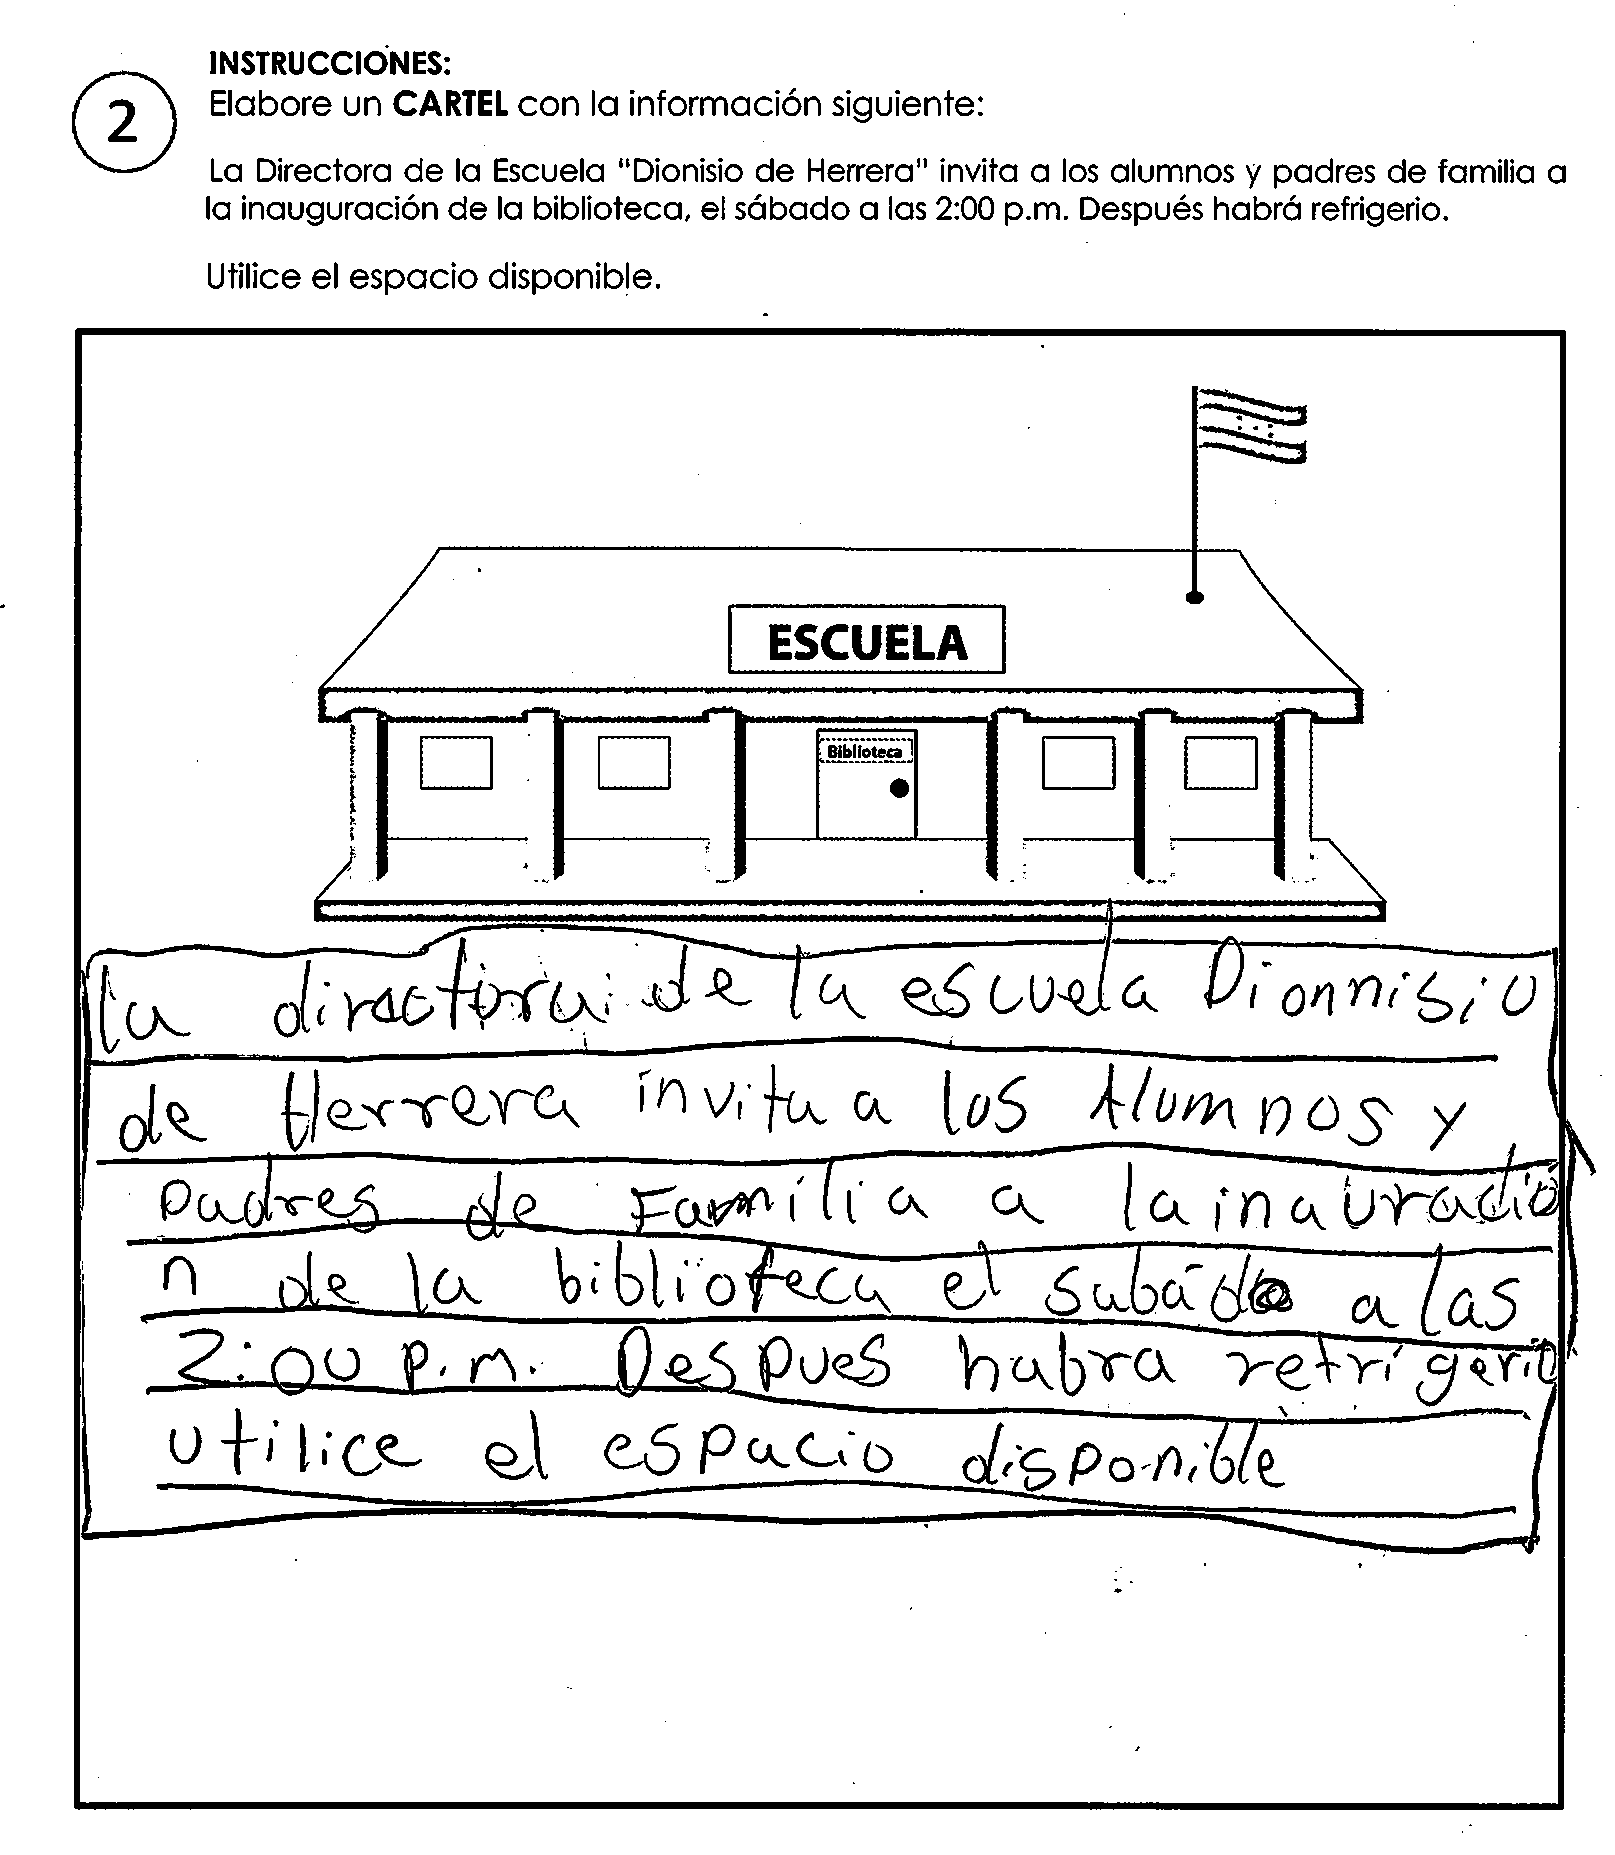 INSTRUCCIONES:
2
Elabore un CARTEL con la información siguiente:
La Directora de la Escuela "Dionisio de Herrera" invita a los alumnos y padres de familia a
la inauguración de la biblioteca, el sábado a las 2:00 p.m. Después habrá refrigerio.
Utilice el espacio disponible.
ESCUELA
Biblioteca
la directora de la escuela Dionnisio
de Herrera invita a los Alumnos y
padres de Familia a la inauració
n de la biblioteca el sabádo a las
2:00 p.m. Despues habra refrigerio
utilice el espacio disponible